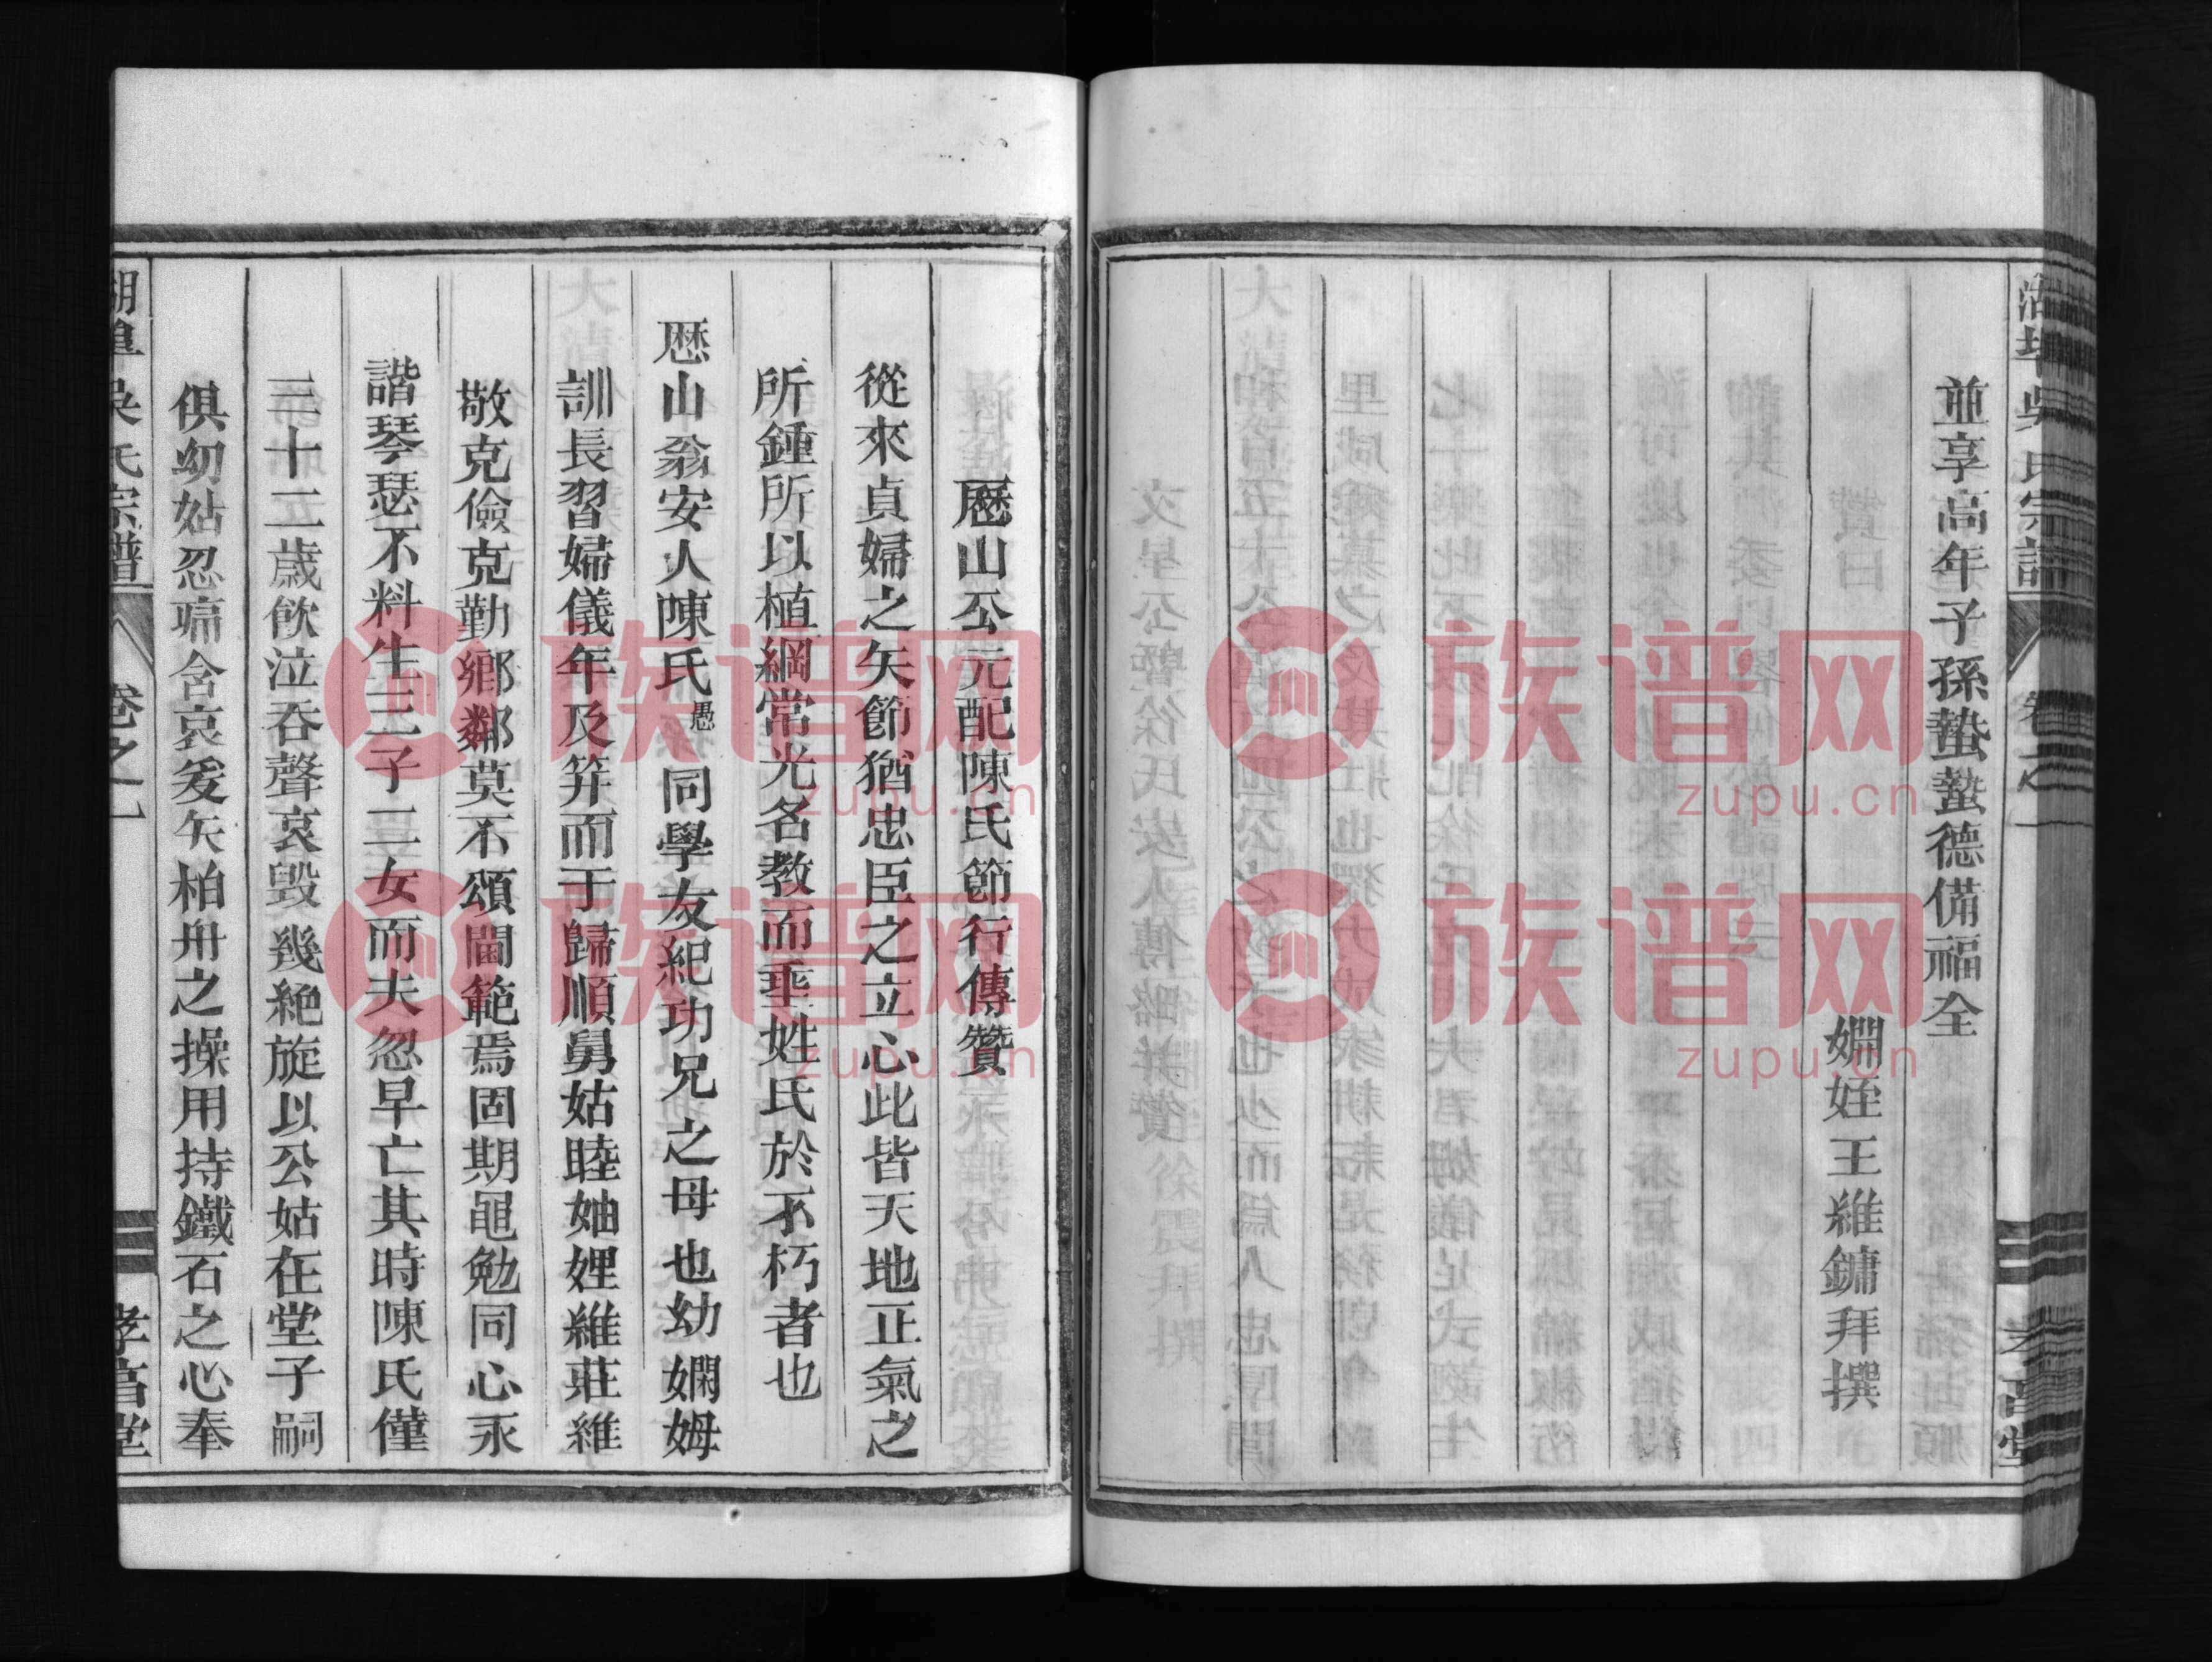 並享高年子孫蟄蟄德備福全
嫻姪王維鏞拜撰
歷山公元配陳氏節行傳贊
從來貞婦之矢節猶忠臣之立心此皆天地正氣之
所鍾所以植綱常光名教而垂姓氏於不朽者也
歷山翁安人陳氏愚同學友紀功兄之母也幼嫻姆
訓長習婦儀年及笄而于歸順舅姑睦妯娌維莊維
敬克儉克勤鄉鄰莫不頌閫範焉固期黽勉同心永
諧琴瑟不料生三子二女而夫忽早亡其時陳氏僅
三十二歲飲泣吞聲哀毀幾絶旋以公姑在堂子嗣
俱幼姑忍痛含哀爰矢柏舟之操用持鐵石之心奉
吳氏宗譜
卷之一
孝言堂
族谱网
zupu.cn
族谱网
zupu.cn
族谱网
zupu.cn
族谱网
zupu.cn